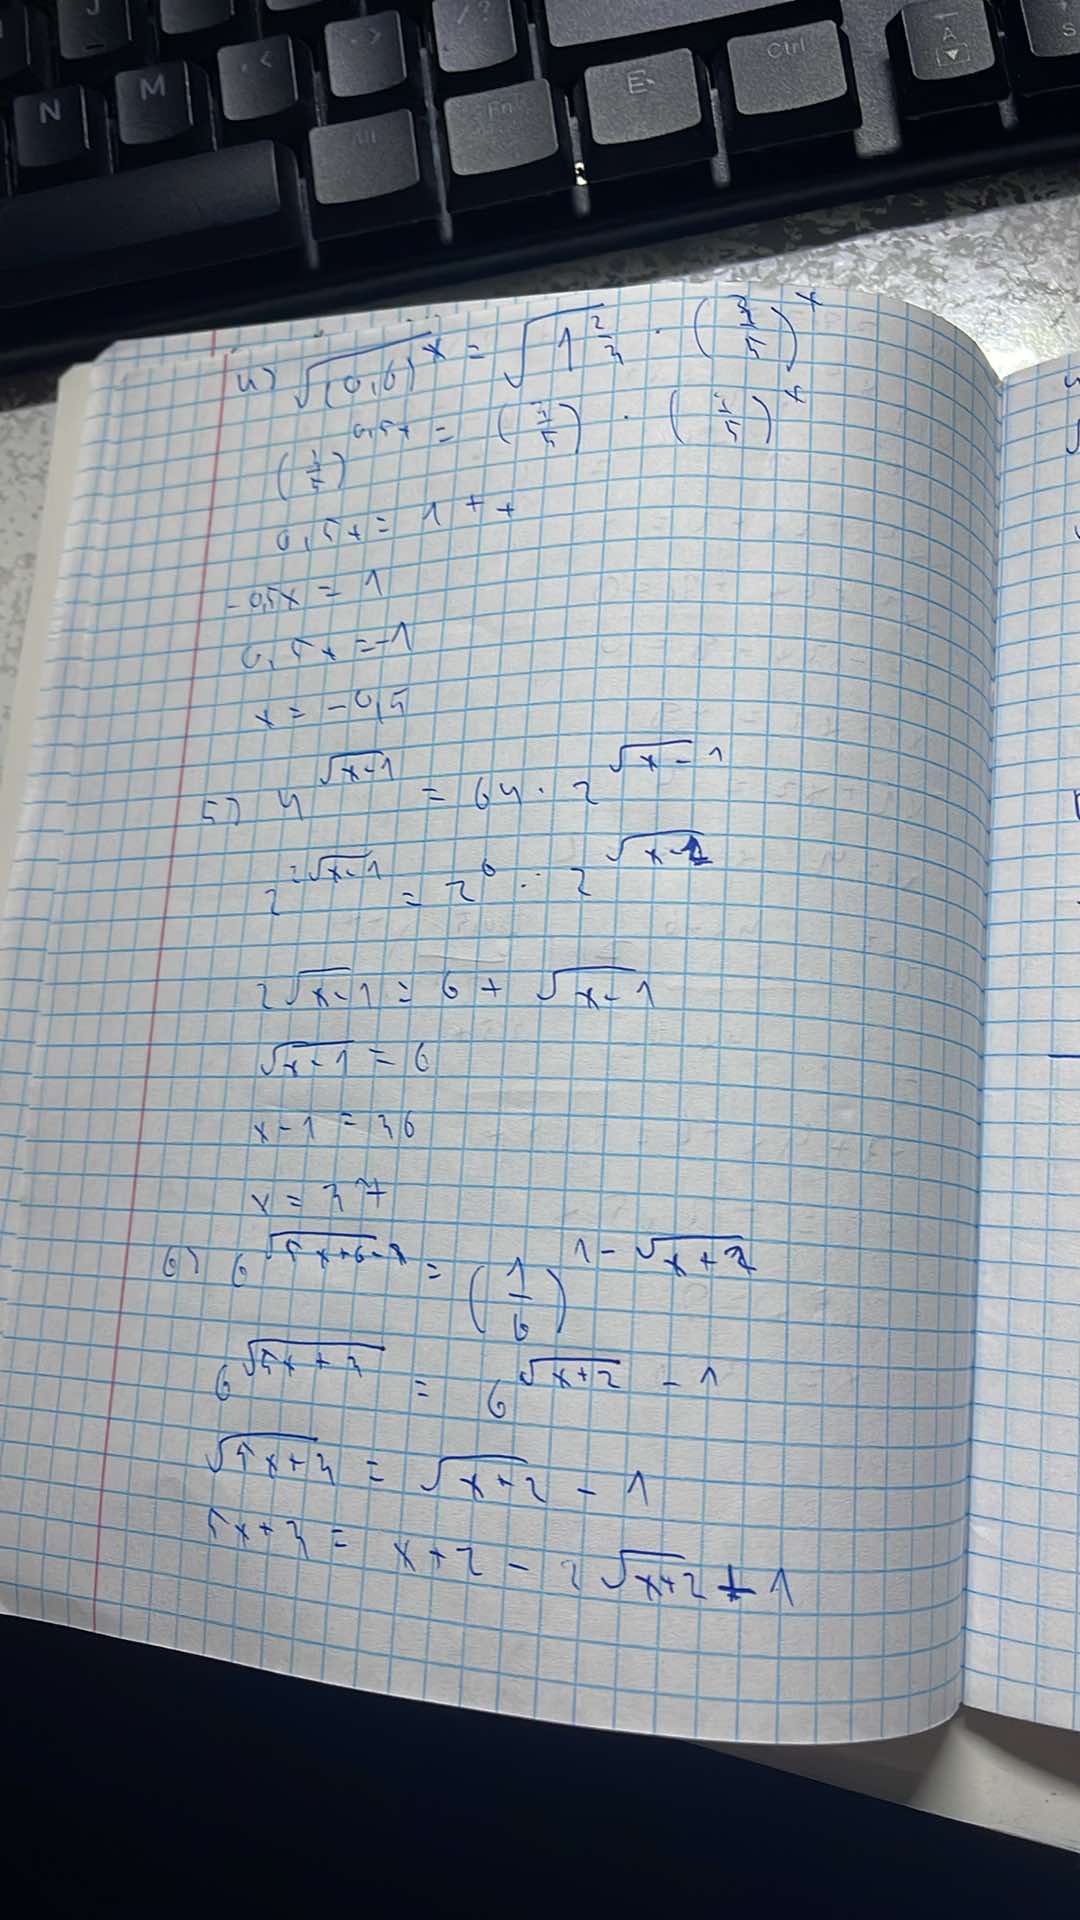 N
M
Alt
Fn
E
Ctrl
A
S
4) √(0,6)^x = √1 2/3 · (3/5)^x
(3/5)^0,5x = (3/5) · (3/5)^x
0,5x = 1 + x
-0,5x = 1
0,5x = -1
x = -0,5
5) 4^√x-1 = 64 · 2^√x-1
2^2√x-1 = 2^6 · 2^√x-1
2√x-1 = 6 + √x-1
√x-1 = 6
x-1 = 36
x = 37
6) 6^√5x+6-3 = (1/6)^1-√x+2
6^√5x+3 = 6^√x+2 - 1
√5x+3 = √x+2 - 1
5x+3 = x+2 - 2√x+2 + 1